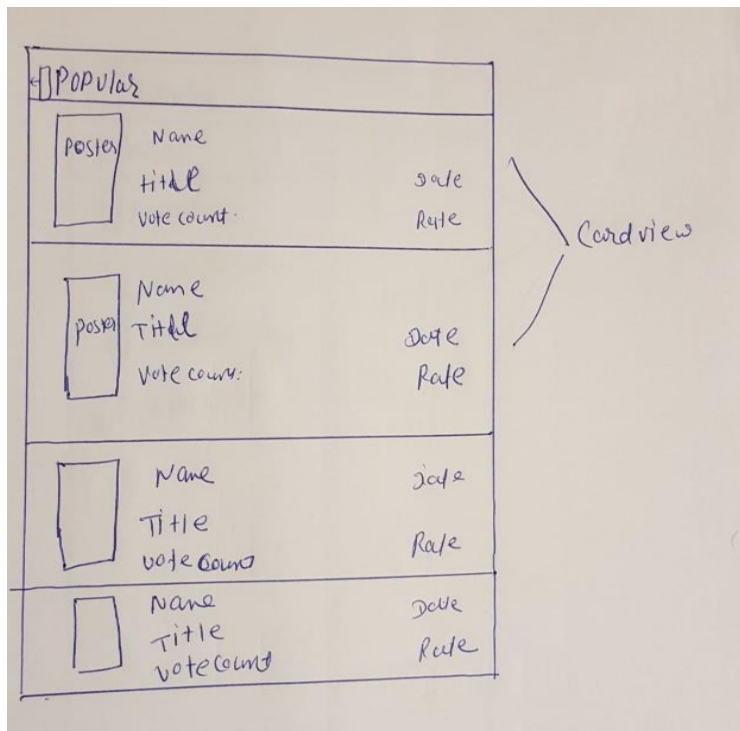 Popular
Poster Name
Title Date
Vote count. Rate
Cardview
Name
Poster Title Date
Vote count: Rate
Name Date
Title
vote count Rate
Name Date
Title
vote count Rate